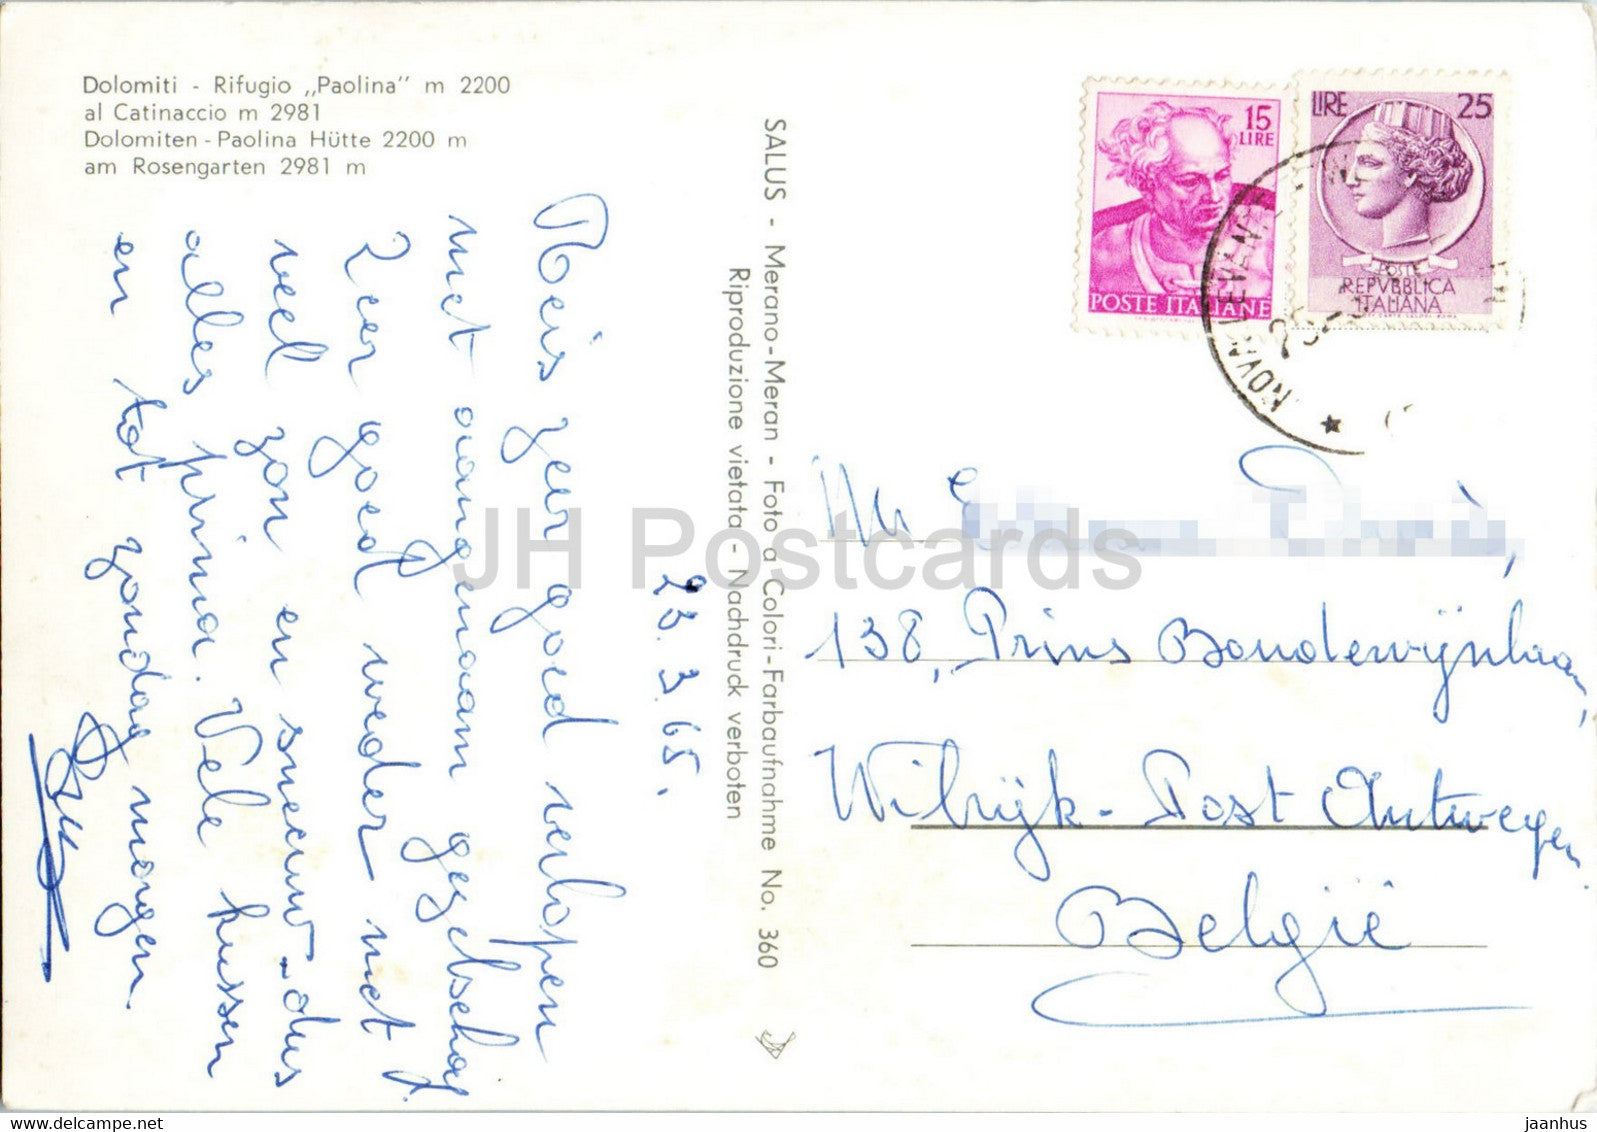 Dolomiti - Rifugio „Paolina" m 2200
al Catinaccio m 2981
Dolomiten - Paolina Hütte 2200 m
am Rosengarten 2981 m
23.3.65.
Reis zeer goed verlopen
met aangenaam gezelschap.
Zeer goed weder met
veel zon en sneeuw - dus
alles prima. Vele kussen
en tot zondag morgen.
SALUS - Merano-Meran - Foto a Colori-Farbaufnahme No. 360
Riproduzione vietata - Nachdruck verboten
15
LIRE
POSTE ITALIANE
LIRE 25
POSTE
REPVBBLICA
ITALIANA
NOVA LEVANTE
138, Prins Boudewijnlaan,
Wilrijk - Post Antwerpen
België
JH Postcards
jaanhus